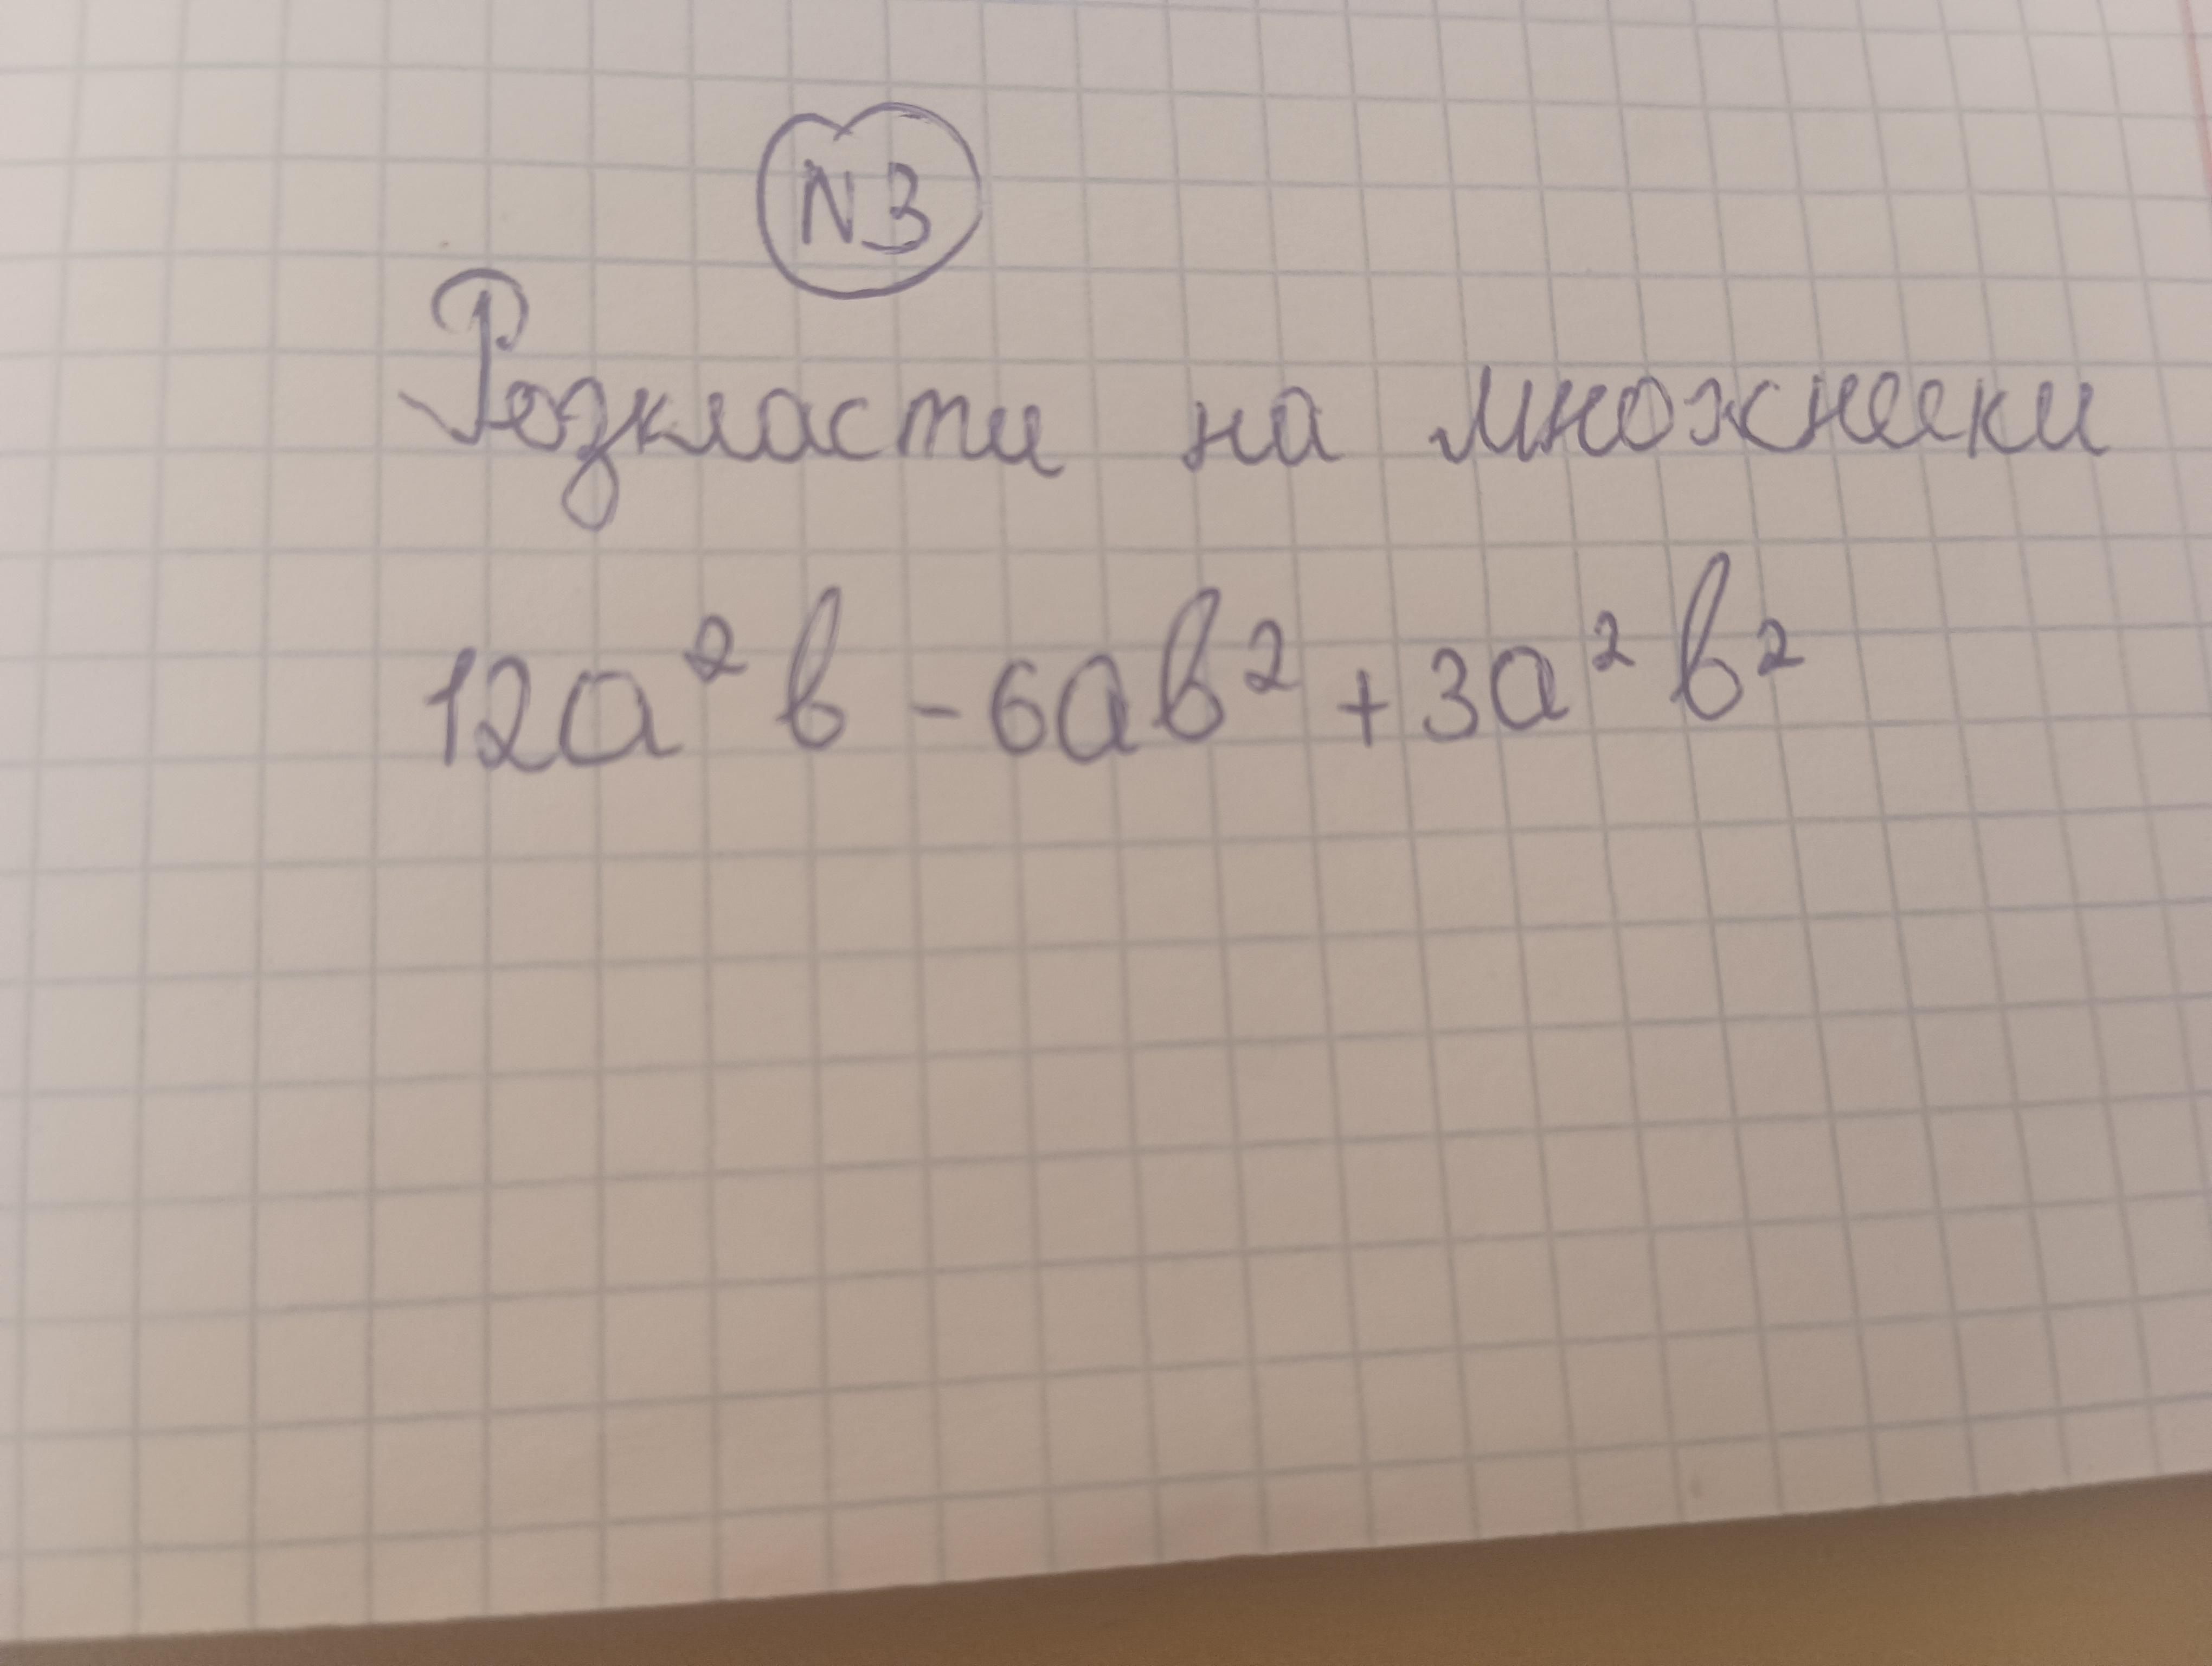 N3
Розкласти на множники
12a²b - 6ab² + 3a²b²